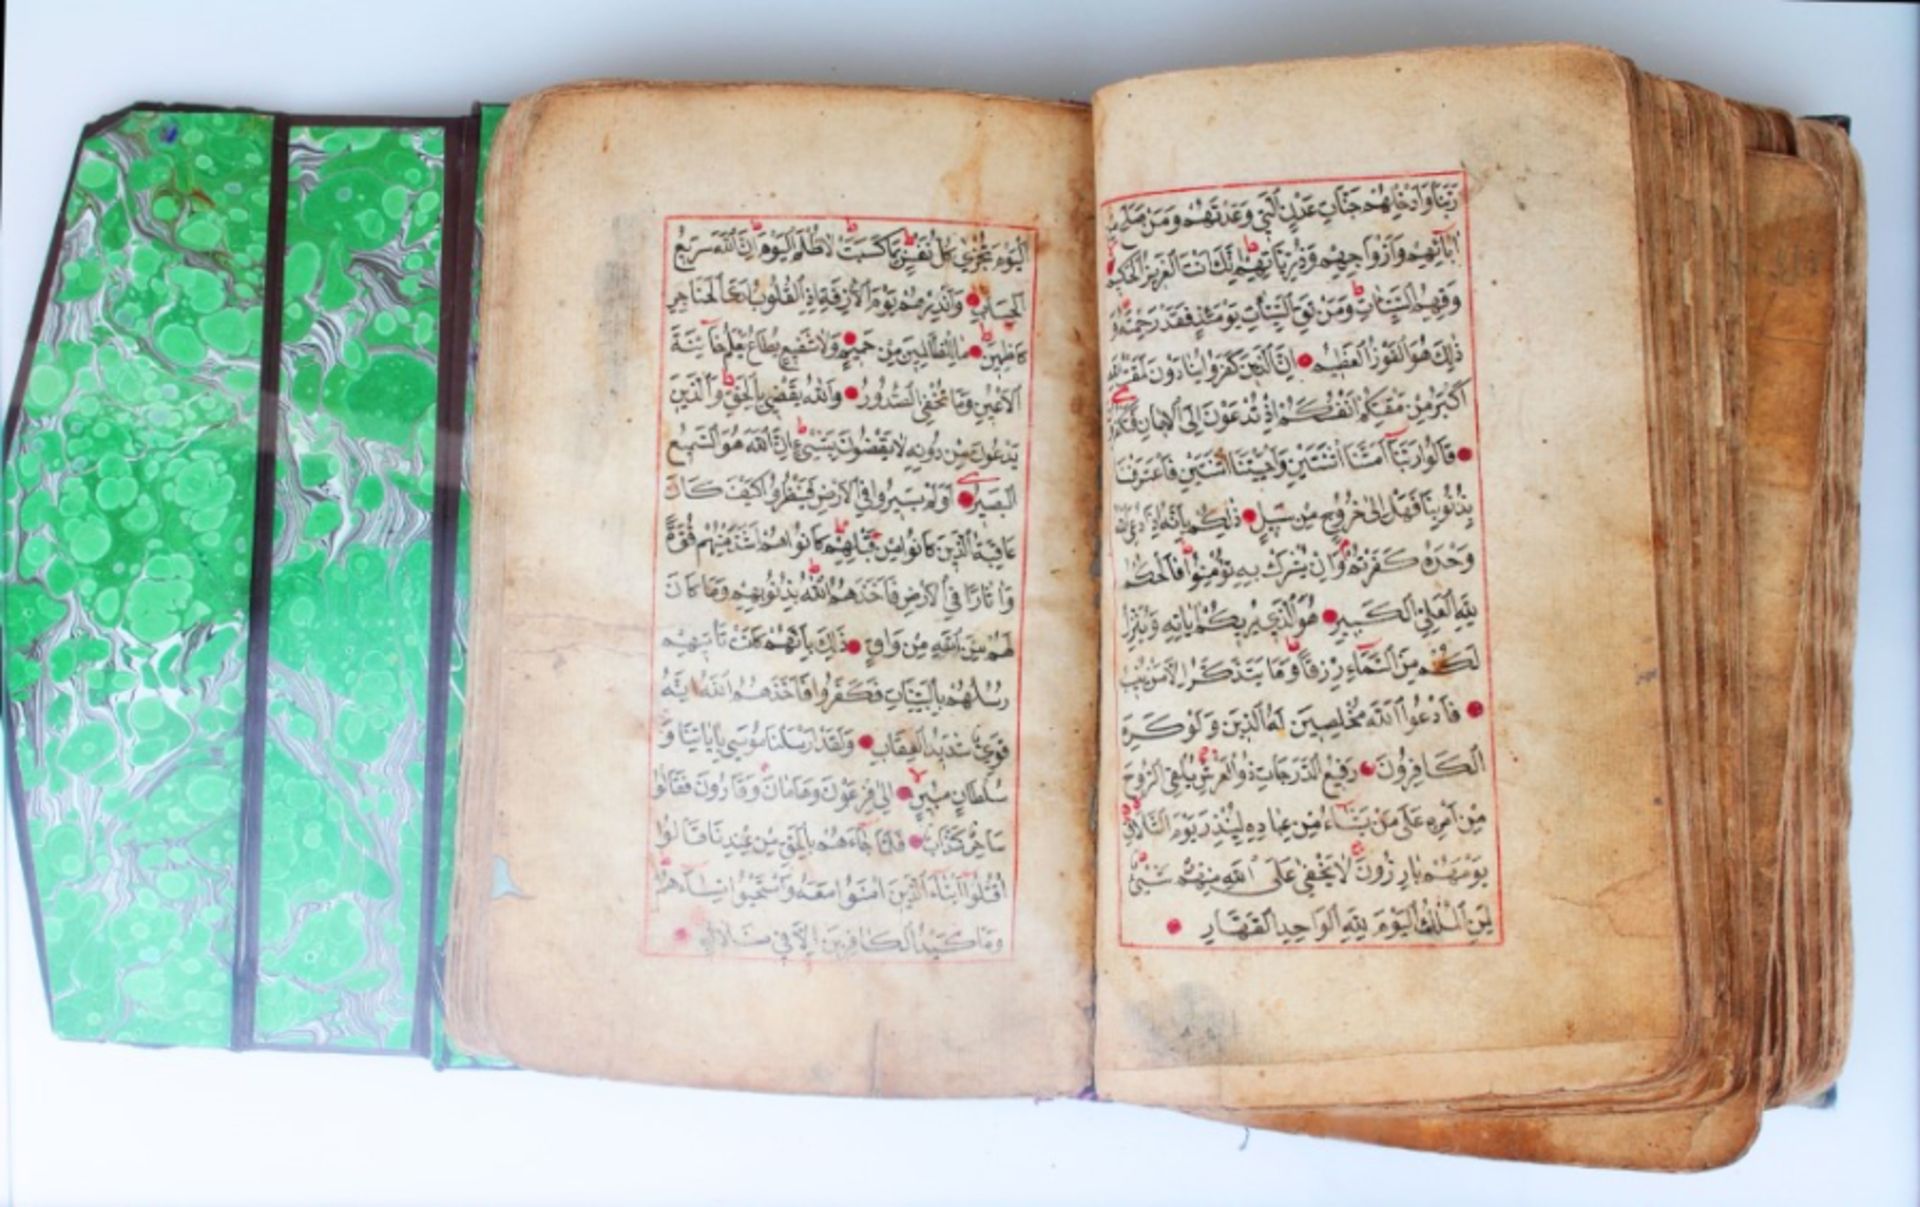 رَبَّنَا وَاَدْخِلْهُمْ جَنَّاتِ عَدْنٍ الَّتِي وَعَدْتَهُمْ وَمَنْ صَلَحَ مِنْ
اٰبَائِهِمْ وَاَزْوَاجِهِمْ وَذُرِّيَّاتِهِمْ اِنَّكَ اَنْتَ الْعَزِيزُ الْحَكِيمُ
وَقِهِمُ السَّيِّئَاتِ وَمَنْ تَقِ السَّيِّئَاتِ يَوْمَئِذٍ فَقَدْ رَحِمْتَهُ وَ
ذٰلِكَ هُوَ الْفَوْزُ الْعَظِيمُ اِنَّ الَّذِينَ كَفَرُوا يُنَادَوْنَ لَمَقْتُ اللهِ
اَكْبَرُ مِنْ مَقْتِكُمْ اَنْفُسَكُمْ اِذْ تُدْعَوْنَ اِلَى الْاِيمَانِ فَتَكْفُرُونَ
قَالُوا رَبَّنَا اَمَتَّنَا اثْنَتَيْنِ وَاَحْيَيْتَنَا اثْنَتَيْنِ فَاعْتَرَفْنَا
بِذُنُوبِنَا فَهَلْ اِلٰى خُرُوجٍ مِنْ سَبِيلٍ ذٰلِكُمْ بِاَنَّهُ اِذَا دُعِيَ اللهُ
وَحْدَهُ كَفَرْتُمْ وَاِنْ يُشْرَكْ بِهِ تُؤْمِنُوا فَالْحُكْمُ
لِلّٰهِ الْعَلِيِّ الْكَبِيرِ هُوَ الَّذِي يُرِيكُمْ اٰيَاتِهِ وَيُنَزِّلُ
لَكُمْ مِنَ السَّمَاءِ رِزْقًا وَمَا يَتَذَكَّرُ اِلَّا مَنْ يُنِيبُ
فَادْعُوا اللهَ مُخْلِصِينَ لَهُ الدِّينَ وَلَوْ كَرِهَ
الْكَافِرُونَ رَفِيعُ الدَّرَجَاتِ ذُو الْعَرْشِ يُلْقِي الرُّوحَ
مِنْ اَمْرِهِ عَلٰى مَنْ يَشَاءُ مِنْ عِبَادِهِ لِيُنْذِرَ يَوْمَ التَّلَاقِ
يَوْمَ هُمْ بَارِزُونَ لَا يَخْفٰى عَلَى اللهِ مِنْهُمْ شَيْءٌ
لِمَنِ الْمُلْكُ الْيَوْمَ لِلّٰهِ الْوَاحِدِ الْقَهَّارِ
اَلْيَوْمَ تُجْزٰى كُلُّ نَفْسٍ بِمَا كَسَبَتْ لَا ظُلْمَ الْيَوْمَ اِنَّ اللهَ سَرِيعُ
الْحِسَابِ وَاَنْذِرْهُمْ يَوْمَ الْاٰزِفَةِ اِذِ الْقُلُوبُ لَدَى الْحَنَاجِرِ
كَاظِمِينَ مَا لِلظَّالِمِينَ مِنْ حَمِيمٍ وَلَا شَفِيعٍ يُطَاعُ يَعْلَمُ خَائِنَةَ
الْاَعْيُنِ وَمَا تُخْفِي الصُّدُورُ وَاللهُ يَقْضِي بِالْحَقِّ وَالَّذِينَ
يَدْعُونَ مِنْ دُونِهِ لَا يَقْضُونَ بِشَيْءٍ اِنَّ اللهَ هُوَ السَّمِيعُ
الْبَصِيرُ اَوَلَمْ يَسِيرُوا فِي الْاَرْضِ فَيَنْظُرُوا كَيْفَ كَانَ
عَاقِبَةُ الَّذِينَ كَانُوا مِنْ قَبْلِهِمْ كَانُوا هُمْ اَشَدَّ مِنْهُمْ قُوَّةً
وَاٰثَارًا فِي الْاَرْضِ فَاَخَذَهُمُ اللهُ بِذُنُوبِهِمْ وَمَا كَانَ
لَهُمْ مِنَ اللهِ مِنْ وَاقٍ ذٰلِكَ بِاَنَّهُمْ كَانَتْ تَاْتِيهِمْ
رُسُلُهُمْ بِالْبَيِّنَاتِ فَكَفَرُوا فَاَخَذَهُمُ اللهُ اِنَّهُ
قَوِيٌّ شَدِيدُ الْعِقَابِ وَلَقَدْ اَرْسَلْنَا مُوسٰى بِاٰيَاتِنَا وَ
سُلْطَانٍ مُبِينٍ اِلٰى فِرْعَوْنَ وَهَامَانَ وَقَارُونَ فَقَالُوا
سَاحِرٌ كَذَّابٌ فَلَمَّا جَاءَهُمْ بِالْحَقِّ مِنْ عِنْدِنَا قَالُوا
اقْتُلُوا اَبْنَاءَ الَّذِينَ اٰمَنُوا مَعَهُ وَاسْتَحْيُوا نِسَاءَهُمْ
وَمَا كَيْدُ الْكَافِرِينَ اِلَّا فِي ضَلَالٍ